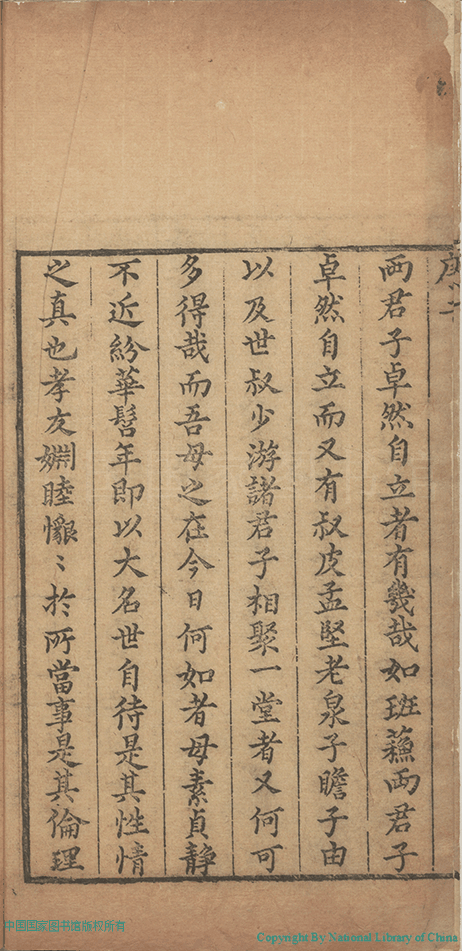 兩君子卓然自立者有幾哉如班蘓兩君子
卓然自立而又有叔皮孟堅老泉子瞻子由
以及世叔少游諸君子相聚一堂者又何可
多得哉而吾母之在今日何如者母素貞靜
不近紛華髫年即以大名世自待是其性情
之真也孝友婣睦懇〻於所當事是其倫理
中国国家图书馆版权所有
Copyright By National Library of China